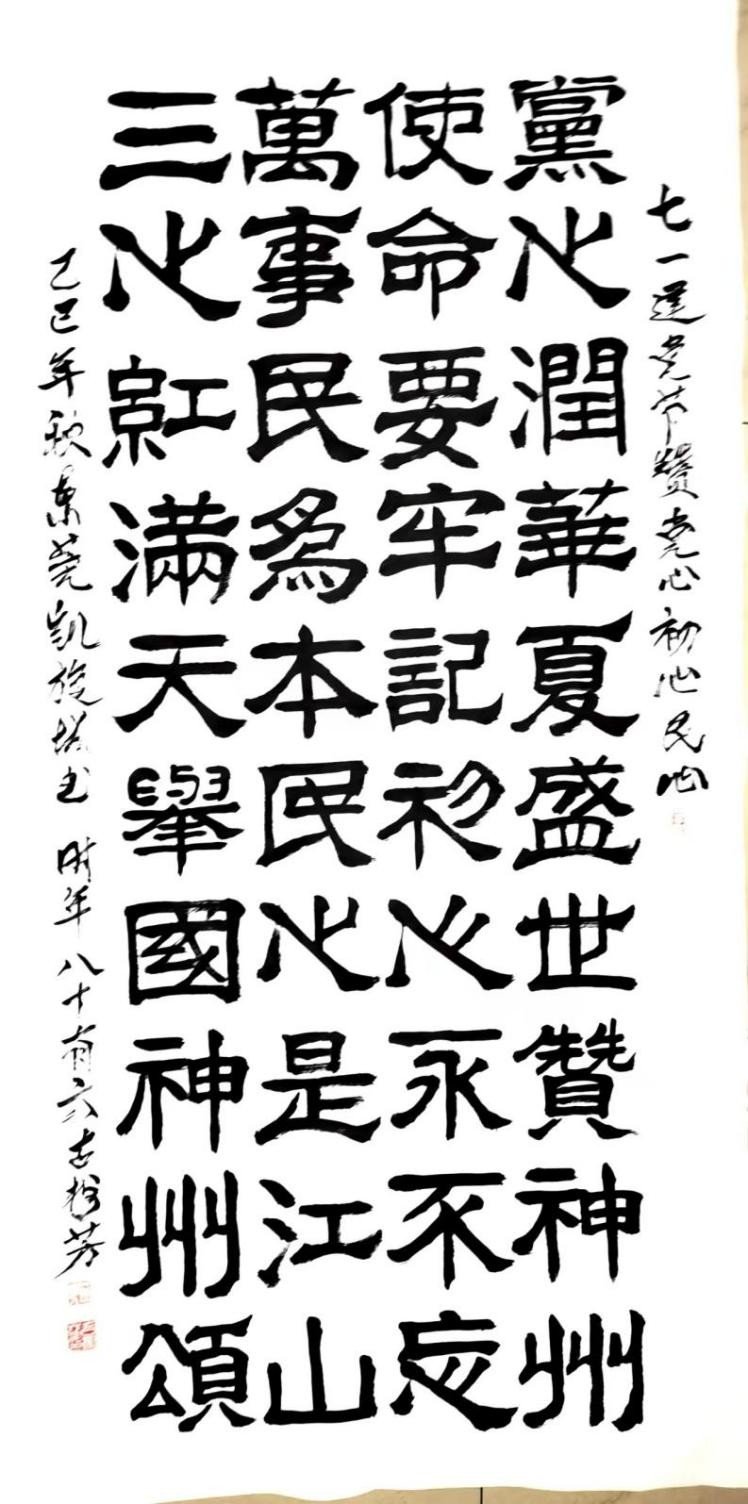 七一建党节赞党心初心民心
黨心潤華夏盛世贊神州
使命要牢記初心永不忘
萬事民為本民心是江山
三心紅滿天舉國神州頌
乙巳年秋東莞凱旋城書 時年八十有六